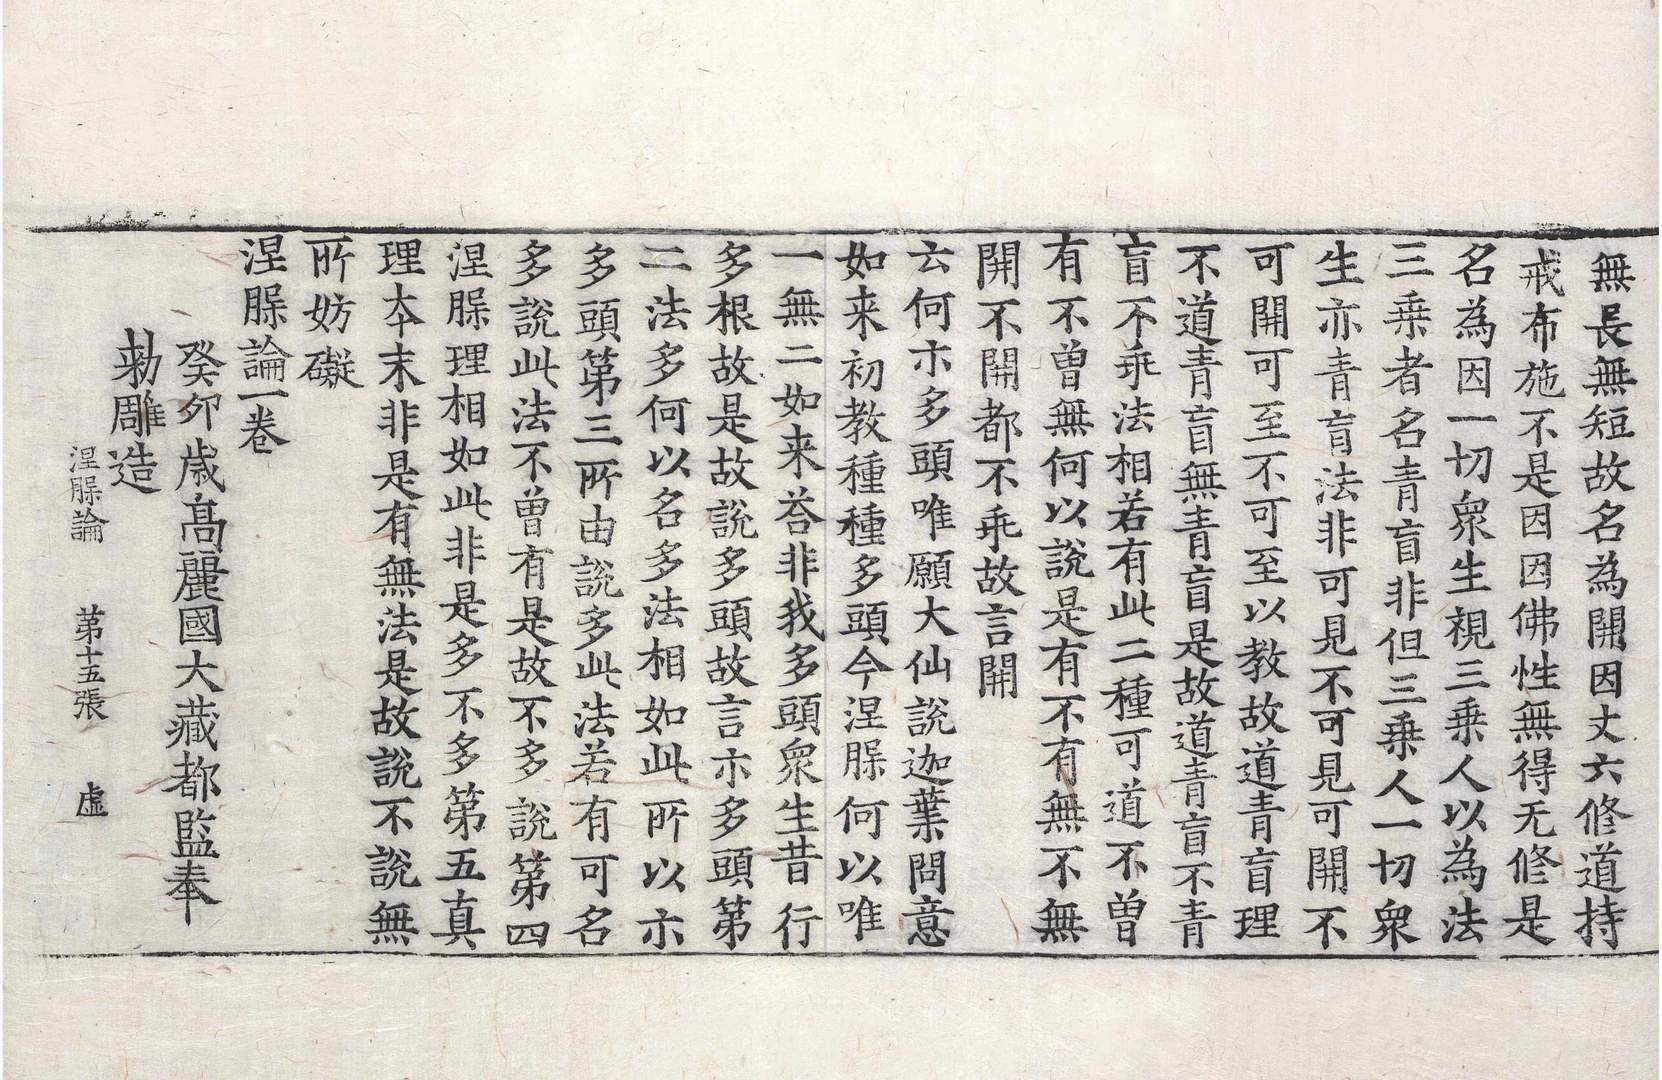 無長無短故名為開因丈六修道持
戒布施不是因因佛性無得无修是
名為因一切衆生視三乗人以為法
三乗者名青盲非但三乗人一切衆
生亦青盲法非可見不可見可開不
可開可至不可至以教故道青盲理
不道青盲無青盲是故道青盲不青
盲不乖法相若有此二種可道不曽
有不曽無何以說是有不有無不無
開不開都不乖故言開
云何示多頭唯願大仙說迦葉問意
如来初教種種多頭今涅脲何以唯
一無二如来荅非我多頭衆生昔行
多根故是故說多頭故言示多頭第
二法多何以名多法相如此所以示
多頭第三所由說多此法若有可名
多說此法不曽有是故不多說第四
涅脲理相如此非是多不多第五真
理本末非是有無法是故說不說無
所妨礙
涅脲論一卷
癸卯歳髙麗國大藏都監奉
勑雕造
涅脲論　第十五張　虛